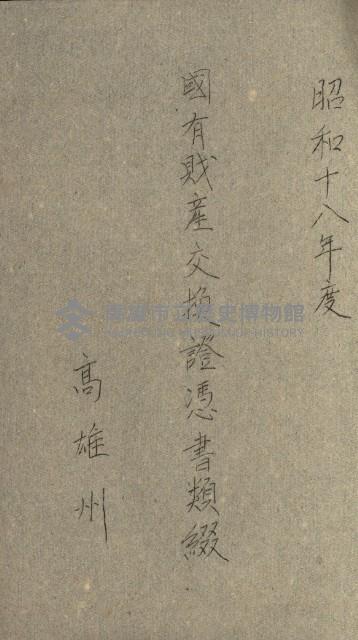 昭和十八年度
國有財産交換證憑書類綴
高雄州
高雄市立歷史博物館
KAOHSIUNG MUSEUM OF HISTORY